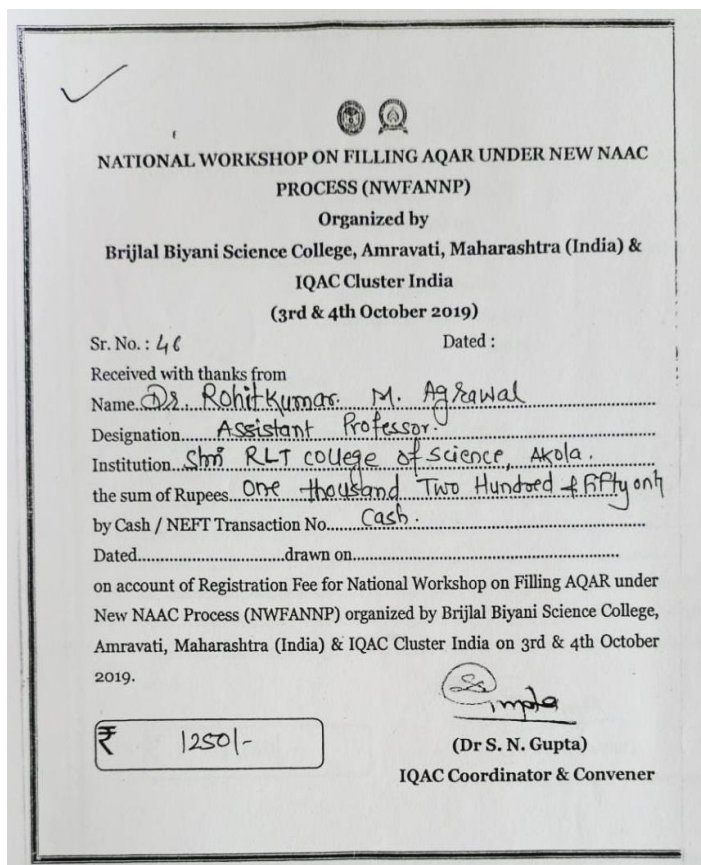 NATIONAL WORKSHOP ON FILLING AQAR UNDER NEW NAAC
PROCESS (NWFANNP)
Organized by
Brijlal Biyani Science College, Amravati, Maharashtra (India) &
IQAC Cluster India
(3rd & 4th October 2019)
Sr. No. : 46 Dated :
Received with thanks from
Name Dr. Rohitkumar. M. Agrawal
Designation Assistant Professor.
Institution Shri RLT college of science, Akola.
the sum of Rupees One thousand Two Hundred & Fifty only
by Cash / NEFT Transaction No. Cash.
Dated..............................drawn on......................................................
on account of Registration Fee for National Workshop on Filling AQAR under
New NAAC Process (NWFANNP) organized by Brijlal Biyani Science College,
Amravati, Maharashtra (India) & IQAC Cluster India on 3rd & 4th October
2019.
Gupta
₹ 1250/-
(Dr S. N. Gupta)
IQAC Coordinator & Convener